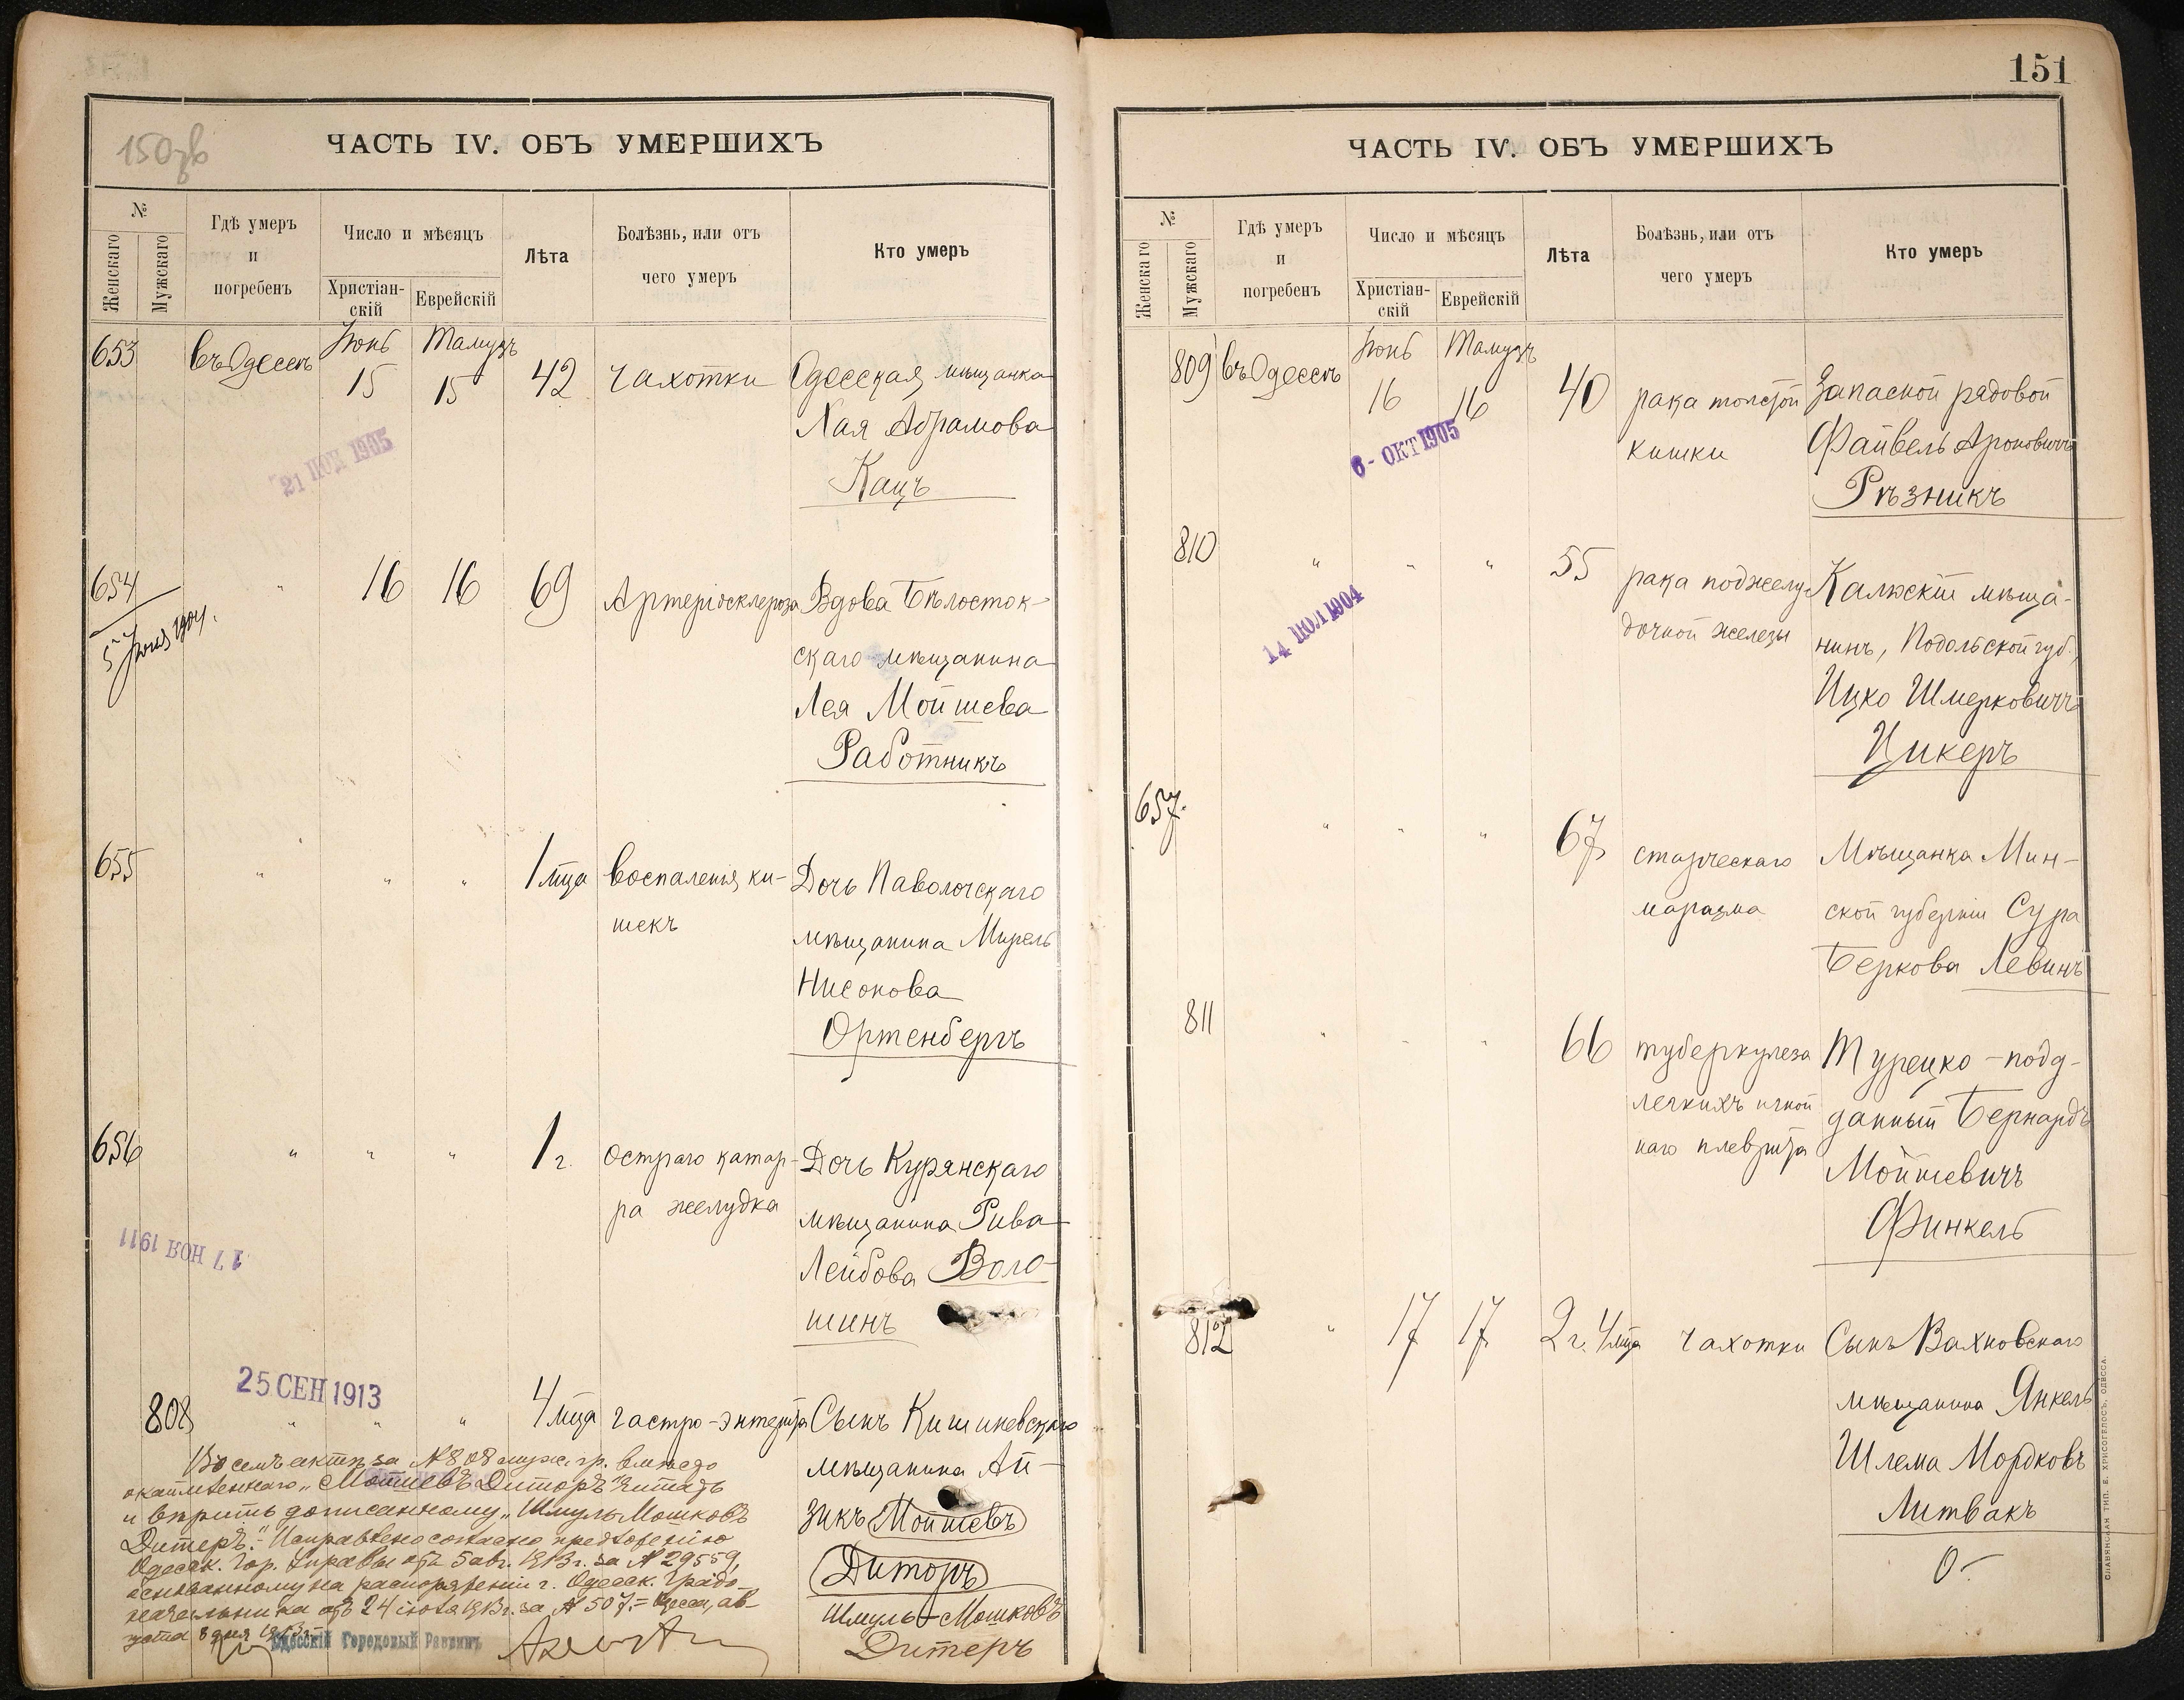 150зв
ЧАСТЬ IV. ОБЪ УМЕРШИХЪ
№
Женскаго
Мужскаго
Гдѣ умеръ
и
погребенъ
Число и мѣсяцъ
Христіан-
скій
Еврейскій
Лѣта
Болѣзнь, или отъ
чего умеръ
Кто умеръ
653 въ Одессѣ Іюнь 15 Тамузъ 15 42 чахотки Одесская мѣщанка
Хая Абрамова
Кацъ
21 НОЯ 1905
654 " 16 16 69 Артеріосклероза Вдова Бѣлосток-
5 Іюля 1904.
скаго мѣщанина
Лея Мойшева
Работникъ
655 " " " 1 мца воспаленія ки- Дочь Паволочскаго
шекъ мѣщанина Мирель
Нисонова
Ортенбергъ
656 " " " 1 г. остраго катар- Дочь Курянскаго
ра желудка мѣщанина Рива
Лейбова Воло-
шинъ
17 НОЯ 1911
25 СЕН 1913
808 " " " 4 мца гастро-энтерита Сынъ Кишиневскаго
мѣщанина Ай-
зикъ Мойшевъ
Диторъ
Шмуль-Мошковъ
Дитеръ
Во семъ актѣ за № 808 муж. гр. вмѣсто
окаймленнаго „Мойшевъ Диторъ" читать
и вѣрить дописанному „Шмуль Мошковъ
Дитеръ." Исправлено согласно предложенію
Одесск. Гор. Управы отъ 5 авг. 1913 г. за № 29559,
основанному на распоряженіи г. Одесск. Градо-
начальника отъ 24 іюля 1913 г. за № 507. = Одесса, ав-
густа 8 дня 1913 г.
Одесскій Городовый Раввинъ
151
ЧАСТЬ IV. ОБЪ УМЕРШИХЪ
№
Женскаго
Мужскаго
Гдѣ умеръ
и
погребенъ
Число и мѣсяцъ
Христіан-
скій
Еврейскій
Лѣта
Болѣзнь, или отъ
чего умеръ
Кто умеръ
809 въ Одессѣ Іюнь 16 Тамузъ 16 40 рака толстой Запасной рядовой
кишки Файвель Ароновичъ
Рѣзникъ
6 - ОКТ 1905
810 " " " 55 рака поджелу- Калюскій мѣща-
дочной железы нинъ, Подольской губ.,
Ицко Шмерковичъ
Цикеръ
14 ИЮЛ 1904
657. " " " 67 старческаго Мѣщанка Мин-
маразма ской губерніи Сура
Беркова Левинъ
811 " " " 66 туберкулеза Турецко-подд-
легкихъ и гной данный Бернардъ
наго плеврита Мойшевичъ
Финкель
812 " 17 17 2 г. 4 мца чахотки Сынъ Вахновскаго
мѣщанина Янкель
Шлема Мордковъ
Литвакъ
О-
СЛАВЯНСКАЯ ТИП. Е. ХРИСОГЕЛОСЪ, ОДЕССА.